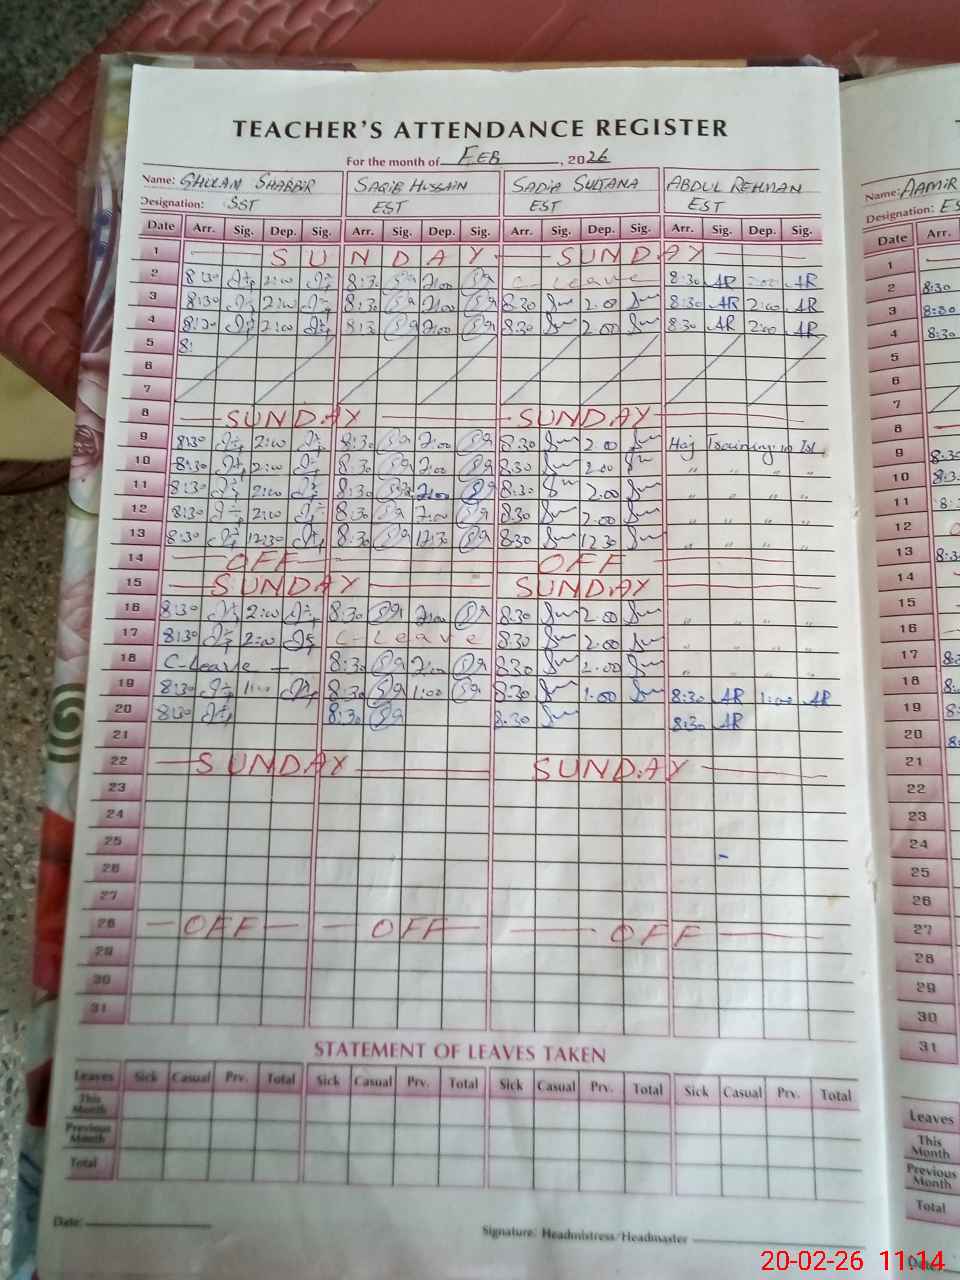 TEACHER'S ATTENDANCE REGISTER
For the month of FEB, 2026
Name: GHULAM SHABBIR SAQIB HUSSAIN SADIA SULTANA ABDUL REHMAN
Designation: SST EST EST EST
Date Arr. Sig. Dep. Sig. Arr. Sig. Dep. Sig. Arr. Sig. Dep. Sig. Arr. Sig. Dep. Sig.
1 SUNDAY SUNDAY
2 8:30 2:00 8:30 2:00 C-Leave 8:30 AR 2:00 AR
3 8:30 2:00 8:30 2:00 8:30 2.00 8:30 AR 2:00 AR
4 8:30 2:00 8:30 2:00 8:30 2.00 8:30 AR 2:00 AR
5 8:
6
7
8 SUNDAY SUNDAY
9 8:30 2:00 8:30 2:00 8.30 2.00 Haj Training in Isl.
10 8:30 2:00 8:30 2:00 8.30 2.00 " " " "
11 8:30 2:00 8:30 2:00 8:30 2.00 " " " "
12 8:30 2:00 8:30 2:00 8.30 2.00 " " " "
13 8:30 12:30 8:30 12:30 8.30 12.30 " " " "
14 OFF OFF
15 SUNDAY SUNDAY
16 8:30 2:00 8:30 2:00 8.30 2.00 " " " "
17 8:30 2:00 C-Leave 8.30 2.00 " " " "
18 C-Leave 8:30 2:00 8.30 2.00 " " " "
19 8:30 1:00 8:30 1:00 8.30 1.00 8:30 AR 1:00 AR
20 8:30 8:30 8.30 8:30 AR
21
22 SUNDAY SUNDAY
23
24
25
26
27
28 OFF OFF OFF
29
30
31
STATEMENT OF LEAVES TAKEN
Leaves Sick Casual Prv. Total Sick Casual Prv. Total Sick Casual Prv. Total Sick Casual Prv. Total
This Month
Previous Month
Total
Date:
Signature: Headmistress/Headmaster
Name: AAMIR
Designation: ES
Date Arr.
1
2 8:30
3 8:30
4 8:30
5
6
7
8
9 8:30
10 8:30
11 8:
12
13 8:30
14
15
16
17
18
19
20
21
22
23
24
25
26
27
28
29
30
31
Leaves
This Month
Previous Month
Total
Date:
20-02-26 11:14